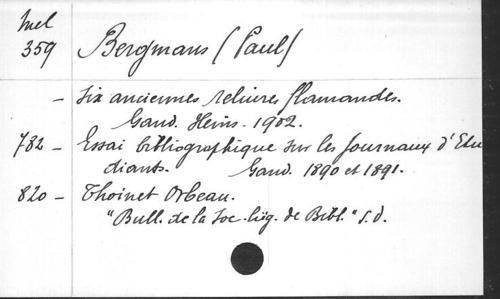 Mel
359 Bergmans (Paul)
- Six anciennes reliures flamandes.
Gand. Heins - 1902.
782 - Essai bibliographique sur les journaux d'Etu
diants. Gand. 1890 et 1891.
820 - Thoinet Orbeau.
"Bull. de la Soc. lieg. de Bibl." s.d.